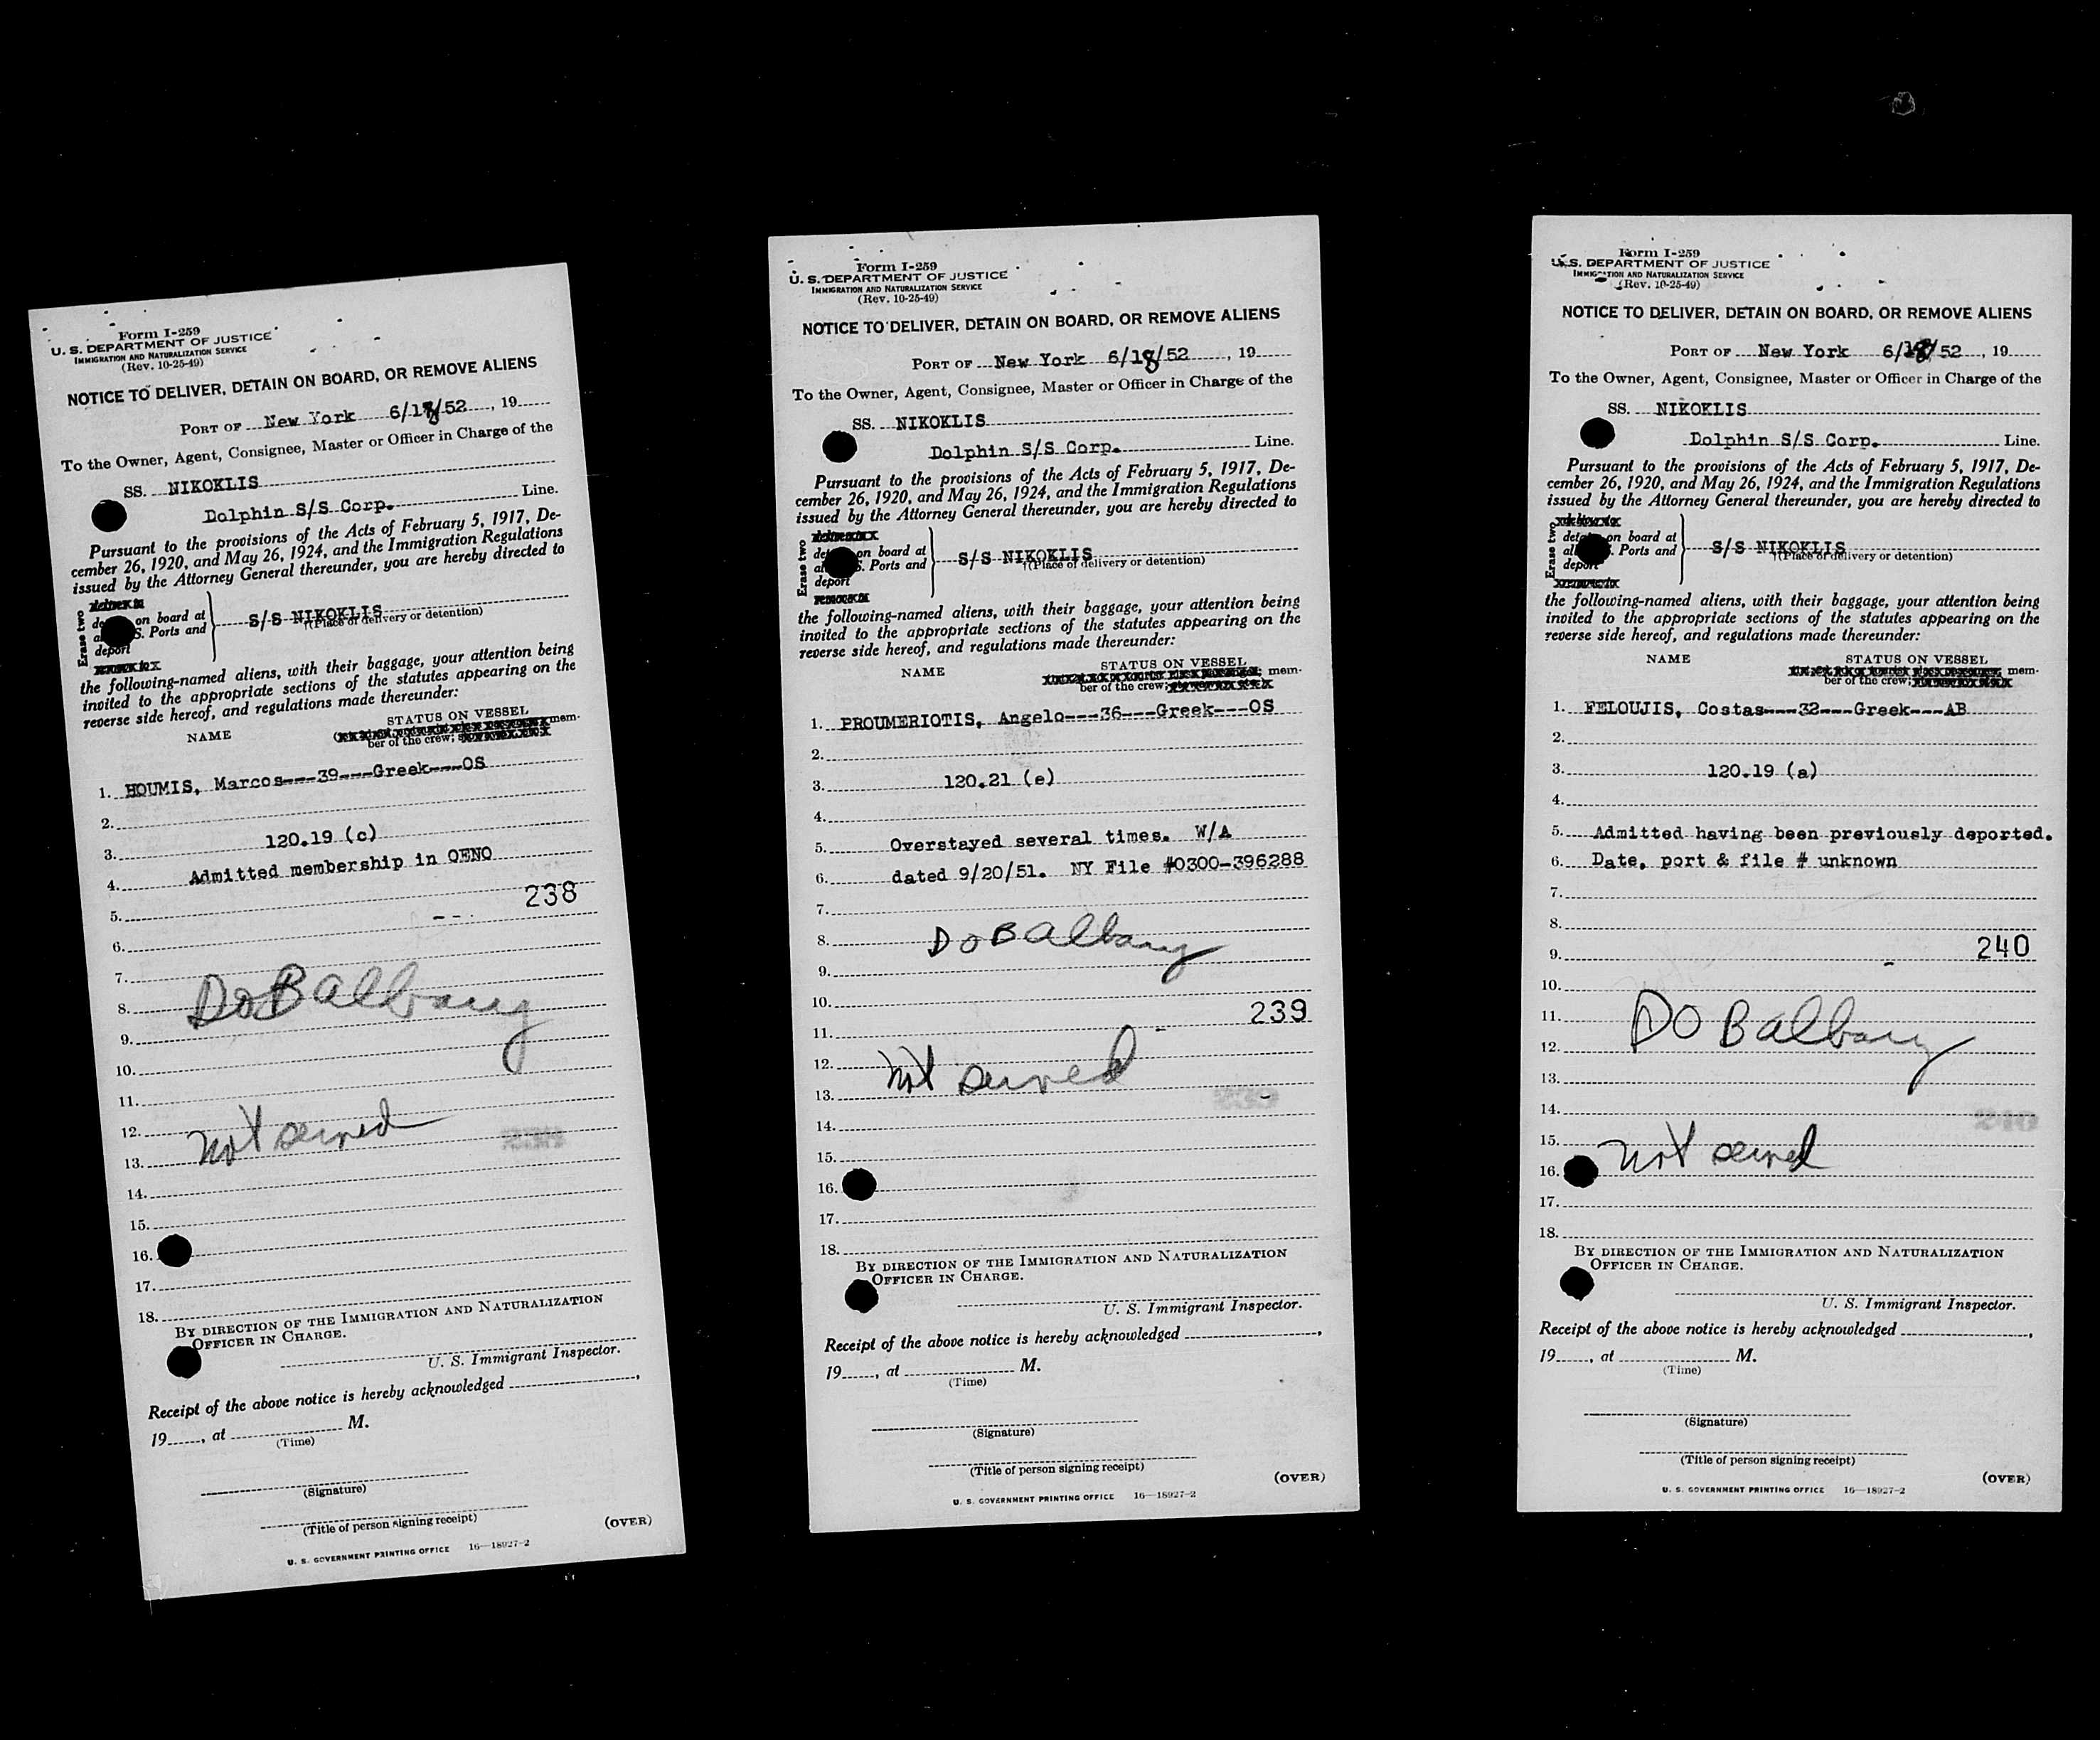 Form I-259
U. S. DEPARTMENT OF JUSTICE
IMMIGRATION AND NATURALIZATION SERVICE
(Rev. 10-25-49)
NOTICE TO DELIVER, DETAIN ON BOARD, OR REMOVE ALIENS
PORT OF New York 6/18/52, 19
To the Owner, Agent, Consignee, Master or Officer in Charge of the
SS. NIKOKLIS
Dolphin S/S Corp. Line.
Pursuant to the provisions of the Acts of February 5, 1917, De-
cember 26, 1920, and May 26, 1924, and the Immigration Regulations
issued by the Attorney General thereunder, you are hereby directed to
Erase two
on board at
S. Ports and
deport
S/S NIKOKLIS
†(Place of delivery or detention)
the following-named aliens, with their baggage, your attention being
invited to the appropriate sections of the statutes appearing on the
reverse side hereof, and regulations made thereunder:
NAME STATUS ON VESSEL
mem-
ber of the crew;
1. HOUMIS, Marcos---39---Greek---OS
2.
3. 120.19 (c)
4. Admitted membership in OENO
5. 238
6.
7.
8. DOB Albany
9.
10.
11.
12. not served
13.
14.
15.
16.
17.
18.
BY DIRECTION OF THE IMMIGRATION AND NATURALIZATION
OFFICER IN CHARGE.
U. S. Immigrant Inspector.
Receipt of the above notice is hereby acknowledged ,
19 , at M.
(Time)
(Signature)
(Title of person signing receipt)
(OVER)
U. S. GOVERNMENT PRINTING OFFICE 16—18927-2
Form I-259
U. S. DEPARTMENT OF JUSTICE
IMMIGRATION AND NATURALIZATION SERVICE
(Rev. 10-25-49)
NOTICE TO DELIVER, DETAIN ON BOARD, OR REMOVE ALIENS
PORT OF New York 6/18/52, 19
To the Owner, Agent, Consignee, Master or Officer in Charge of the
SS. NIKOKLIS
Dolphin S/S Corp. Line.
Pursuant to the provisions of the Acts of February 5, 1917, De-
cember 26, 1920, and May 26, 1924, and the Immigration Regulations
issued by the Attorney General thereunder, you are hereby directed to
Erase two
on board at
S. Ports and
deport
S/S NIKOKLIS
†(Place of delivery or detention)
the following-named aliens, with their baggage, your attention being
invited to the appropriate sections of the statutes appearing on the
reverse side hereof, and regulations made thereunder:
NAME STATUS ON VESSEL
mem-
ber of the crew;
1. PROUMERIOTIS, Angelo---36---Greek---OS
2.
3. 120.21 (e)
4.
5. Overstayed several times. W/A
6. dated 9/20/51. NY File #0300-396288
7.
8. DOB Albany
9.
10.
11. 239
12. not served
13.
14.
15.
16.
17.
18.
BY DIRECTION OF THE IMMIGRATION AND NATURALIZATION
OFFICER IN CHARGE.
U. S. Immigrant Inspector.
Receipt of the above notice is hereby acknowledged ,
19 , at M.
(Time)
(Signature)
(Title of person signing receipt)
(OVER)
U. S. GOVERNMENT PRINTING OFFICE 16—18927-2
Form I-259
U. S. DEPARTMENT OF JUSTICE
IMMIGRATION AND NATURALIZATION SERVICE
(Rev. 10-25-49)
NOTICE TO DELIVER, DETAIN ON BOARD, OR REMOVE ALIENS
PORT OF New York 6/18/52, 19
To the Owner, Agent, Consignee, Master or Officer in Charge of the
SS. NIKOKLIS
Dolphin S/S Corp. Line.
Pursuant to the provisions of the Acts of February 5, 1917, De-
cember 26, 1920, and May 26, 1924, and the Immigration Regulations
issued by the Attorney General thereunder, you are hereby directed to
Erase two
on board at
Ports and
deport
S/S NIKOKLIS
†(Place of delivery or detention)
the following-named aliens, with their baggage, your attention being
invited to the appropriate sections of the statutes appearing on the
reverse side hereof, and regulations made thereunder:
NAME STATUS ON VESSEL
mem-
ber of the crew;
1. FELOUJIS, Costas---32---Greek---AB
2.
3. 120.19 (a)
4.
5. Admitted having been previously deported.
6. Date, port & file # unknown
7.
8.
9. 240
10.
11. DOB Albany
12.
13.
14. 240
15. not served
16.
17.
18.
BY DIRECTION OF THE IMMIGRATION AND NATURALIZATION
OFFICER IN CHARGE.
U. S. Immigrant Inspector.
Receipt of the above notice is hereby acknowledged ,
19 , at M.
(Time)
(Signature)
(Title of person signing receipt)
(OVER)
U. S. GOVERNMENT PRINTING OFFICE 16—18927-2